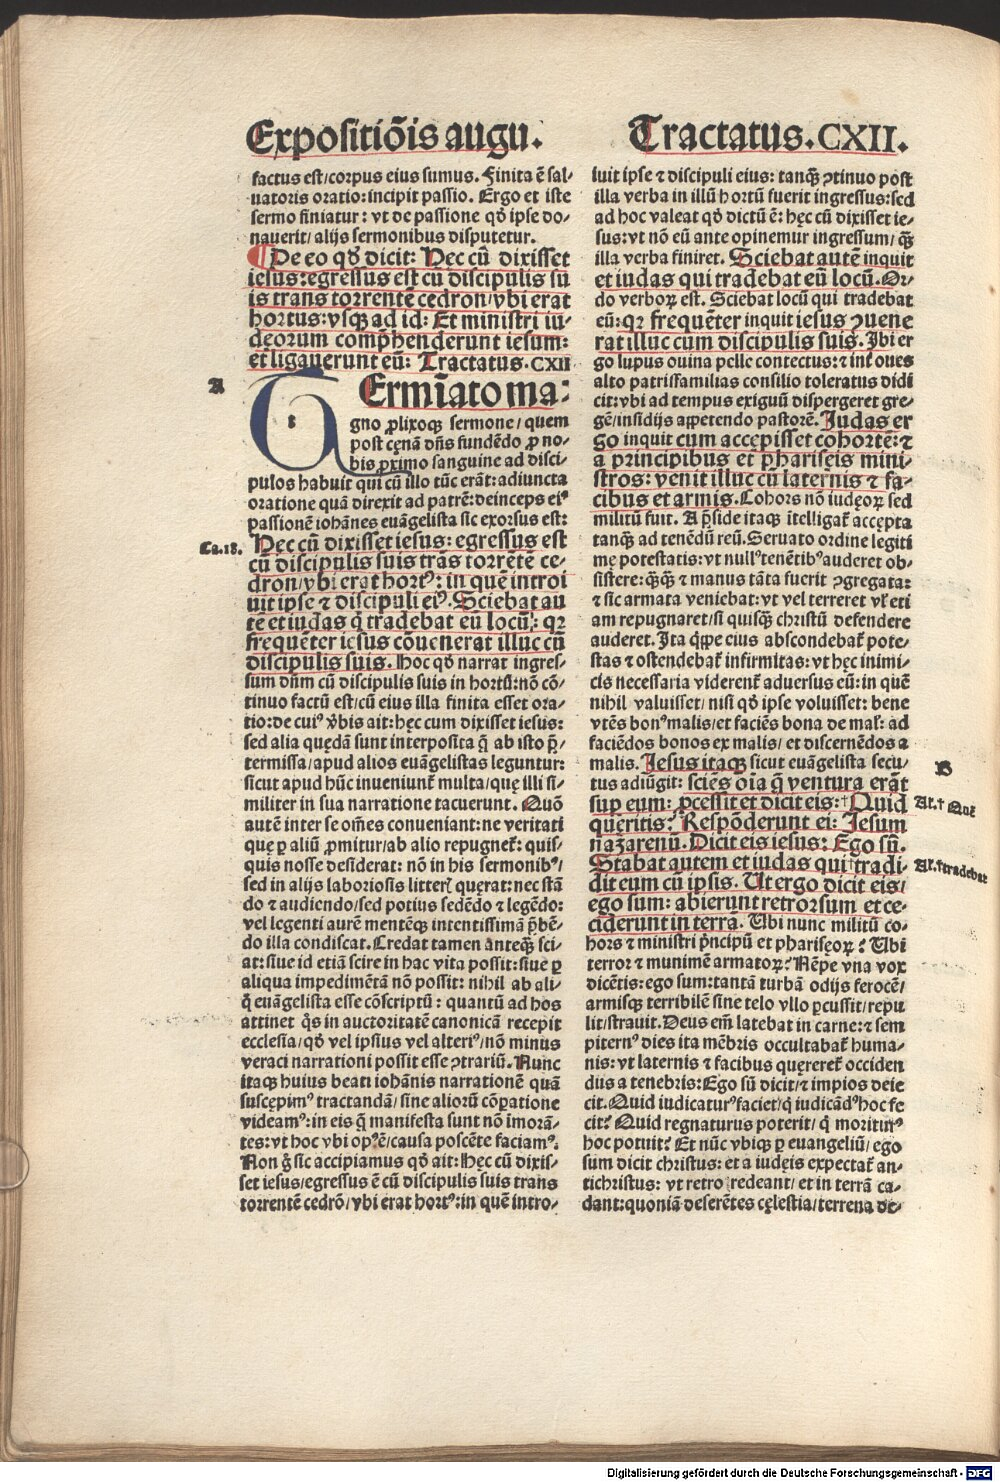 Expositiõis augu.
Tractatus.CXII.
factus est/corpus eius sumus. Finita ē sal-
uatoris oratio:incipit passio. Ergo et iste
sermo finiatur: vt de passione qđ ipse do-
nauerit/alijs sermonibus disputetur.
¶ De eo qđ dicit: Hec cũ dixisset
iesus:egressus est cũ discipulis su
is trans torrentē cedron/vbi erat
hortus:vsqꝫ ad id: Et ministri iu-
deorum comp̃henderunt iesum:
et ligauerunt eũ: Tractatus.CXII
A
Ermĩato ma:
gno ꝓlixoqꝫ sermone/quem
post cęnã dñs fundẽdo ꝓ no-
bis ꝓximo sanguine ad disci-
pulos habuit qui cũ illo tũc erãt:adiuncta
oratione quã direxit ad patrẽ:deinceps eiꝰ
passionẽ iohãnes euãgelista sic exorsus est:
Ca.18.
Hec cũ dixisset iesus: egressus est
cũ discipulis suis trãs torrẽtẽ ce-
dron/vbi erat hortꝰ: in quẽ introi
uit ipse ⁊ discipuli eiꝰ. Sciebat au
tẽ et iudas q̃ tradebat eũ locũ: qꝛ
frequẽter iesus cõuenerat illuc cũ
discipulis suis. Hoc qđ narrat ingres-
sum dñm cũ discipulis suis in hortũ:nõ cõ-
tinuo factũ est/cũ eius illa finita esset ora-
tio:de cuiꝰ v̄bis ait: hęc cum dixisset iesus:
sed alia quędã sunt interposita q̃ ab isto p̃-
termissa/apud alios euãgelistas leguntur:
sicut apud hũc inueniunt̃ multa/que illi si-
militer in sua narratione tacuerunt. Quõ
autẽ inter se om̃es conueniant:ne veritati
quę ꝑ aliũ ꝓmitur/ab alio repugnet̃: quis-
quis nosse desiderat: nõ in his sermonibꝰ/
sed in alijs laboriosis litteris quęrat:nec stã
do ⁊ audiendo/sed potius sedẽdo ⁊ legẽdo:
vel legenti aurẽ mentẽqꝫ intentissimã p̃bẽ-
do illa condiscat. Credat tamen anteqꝫ sci-
at:siue id etiã scire in hac vita possit:siue ꝑ
aliqua impedimẽta nõ possit: nihil ab ali-
q̃ euãgelista esse cõscriptũ: quantũ ad hos
attinet q̃s in auctoritatẽ canonicã recepit
ecclesia/qđ vel ipsius vel alteriꝰ/nõ minus
veraci narrationi possit esse ꝯtrariũ. Nunc
itaqꝫ huius beati iohãnis narrationẽ quã
suscępimꝰ tractandã/sine aliorũ cõꝑatione
videamꝰ:in eis q̃ manifesta sunt nõ imorã-
tes:vt hoc vbi opꝰ ẽ/causa poscẽte faciamꝰ.
Non g̃ sic accipiamus qđ ait: Hęc cũ dixis-
set iesus/egressus ẽ cũ discipulis suis trans
torrentẽ cedrõ/vbi erat hortꝰ:in quẽ intro-
iuit ipse ⁊ discipuli eius: tanqꝫ ꝯtinuo post
illa verba in illũ hortũ fuerit ingressus:sed
ad hoc valeat qđ dictũ ẽ: hęc cũ dixisset ie-
sus:vt nõ eũ ante opinemur ingressum/qꝫ
illa verba finiret. Sciebat autẽ inquit
et iudas qui tradebat eũ locũ. Or-
do verboꝝ est. Sciebat locũ qui tradebat
eũ:qꝛ frequẽter inquit iesus ꝯuene
rat illuc cum discipulis suis. Ibi er
go lupus ouina pelle contectus: ⁊ int̃ oues
alto patrisfamilias consilio toleratus didi
cit:vbi ad tempus exiguũ dispergeret gre-
gẽ/insidijs appetendo pastorẽ. Iudas er
go inquit cum accepisset cohortẽ: ⁊
a principibus et pharisęis mini-
stros: venit illuc cũ laternis ⁊ fa-
cibus et armis. Cohors nõ iudęoꝝ sed
militũ fuit. A p̃side itaqꝫ ĩtelligat̃ accepta
tanqꝫ ad tenẽdũ reũ. Seruato ordine legiti
mę potestatis:vt nullꝰ tenẽtibꝰ auderet ob-
sistere: q̃qꝫ ⁊ manus tãta fuerit ꝯgregata:
⁊ sic armata veniebat: vt vel terreret vel eti
am repugnaret/si quisqꝫ christũ defendere
auderet. Ita q̃ppe eius abscondebat̃ pote-
stas ⁊ ostendebat̃ infirmitas: vt hęc inimi-
cis necessaria viderent̃ aduersus eũ: in quẽ
nihil valuisset/nisi qđ ipse voluisset: bene
vtẽs bonꝰ malis/et faciẽs bona de mał: ad
faciẽdos bonos ex malis/et discernẽdos a
malis. Iesus itaqꝫ sicut euãgelista secu-
B
tus adiũgit: sciẽs oĩa q̃ ventura erãt
suꝑ eum: ꝓcessit et dicit eis:† Quid
Al.† Quẽ
quęritis? Respõderunt ei: Iesum
nazarenũ. Dicit eis iesus: Ego sũ.
Stabat autem et iudas qui†tradi-
Al.†tradebat
dit eum cũ ipsis. Ut ergo dicit eis/
ego sum: abierunt retrorsum et ce-
ciderunt in terrã. Ubi nunc militũ co-
hors ⁊ ministri p̃ncipũ et pharisęoꝝ? Ubi
terror ⁊ munimẽ armatoꝝ? Nẽpe vna vox
dicẽtis: ego sum:tantã turbã odijs ferocẽ/
armisqꝫ terribilẽ sine telo vllo ꝑcussit/repu
lit/strauit. Deus em̃ latebat in carne: ⁊ sem
piternꝰ dies ita mẽbris occultabat̃ huma-
nis: vt laternis ⁊ facibus quęreret̃ occiden
dus a tenebris: Ego sũ dicit/⁊ impios deie
cit. Quid iudicaturꝰ faciet/q̃ iudicãdꝰ hoc fe
cit? Quid regnaturus poterit/ q̃ moriturꝰ
hoc potuit? Et nũc vbiqꝫ ꝑ euangeliũ/ ego
sum dicit christus: et a iudęis expectat̃ an-
tichristus: vt retro redeant/ et in terrã ca-
dant:quoniã deserẽtes cęlestia/terrena de-
Digitalisierung gefördert durch die Deutsche Forschungsgemeinschaft - DFG